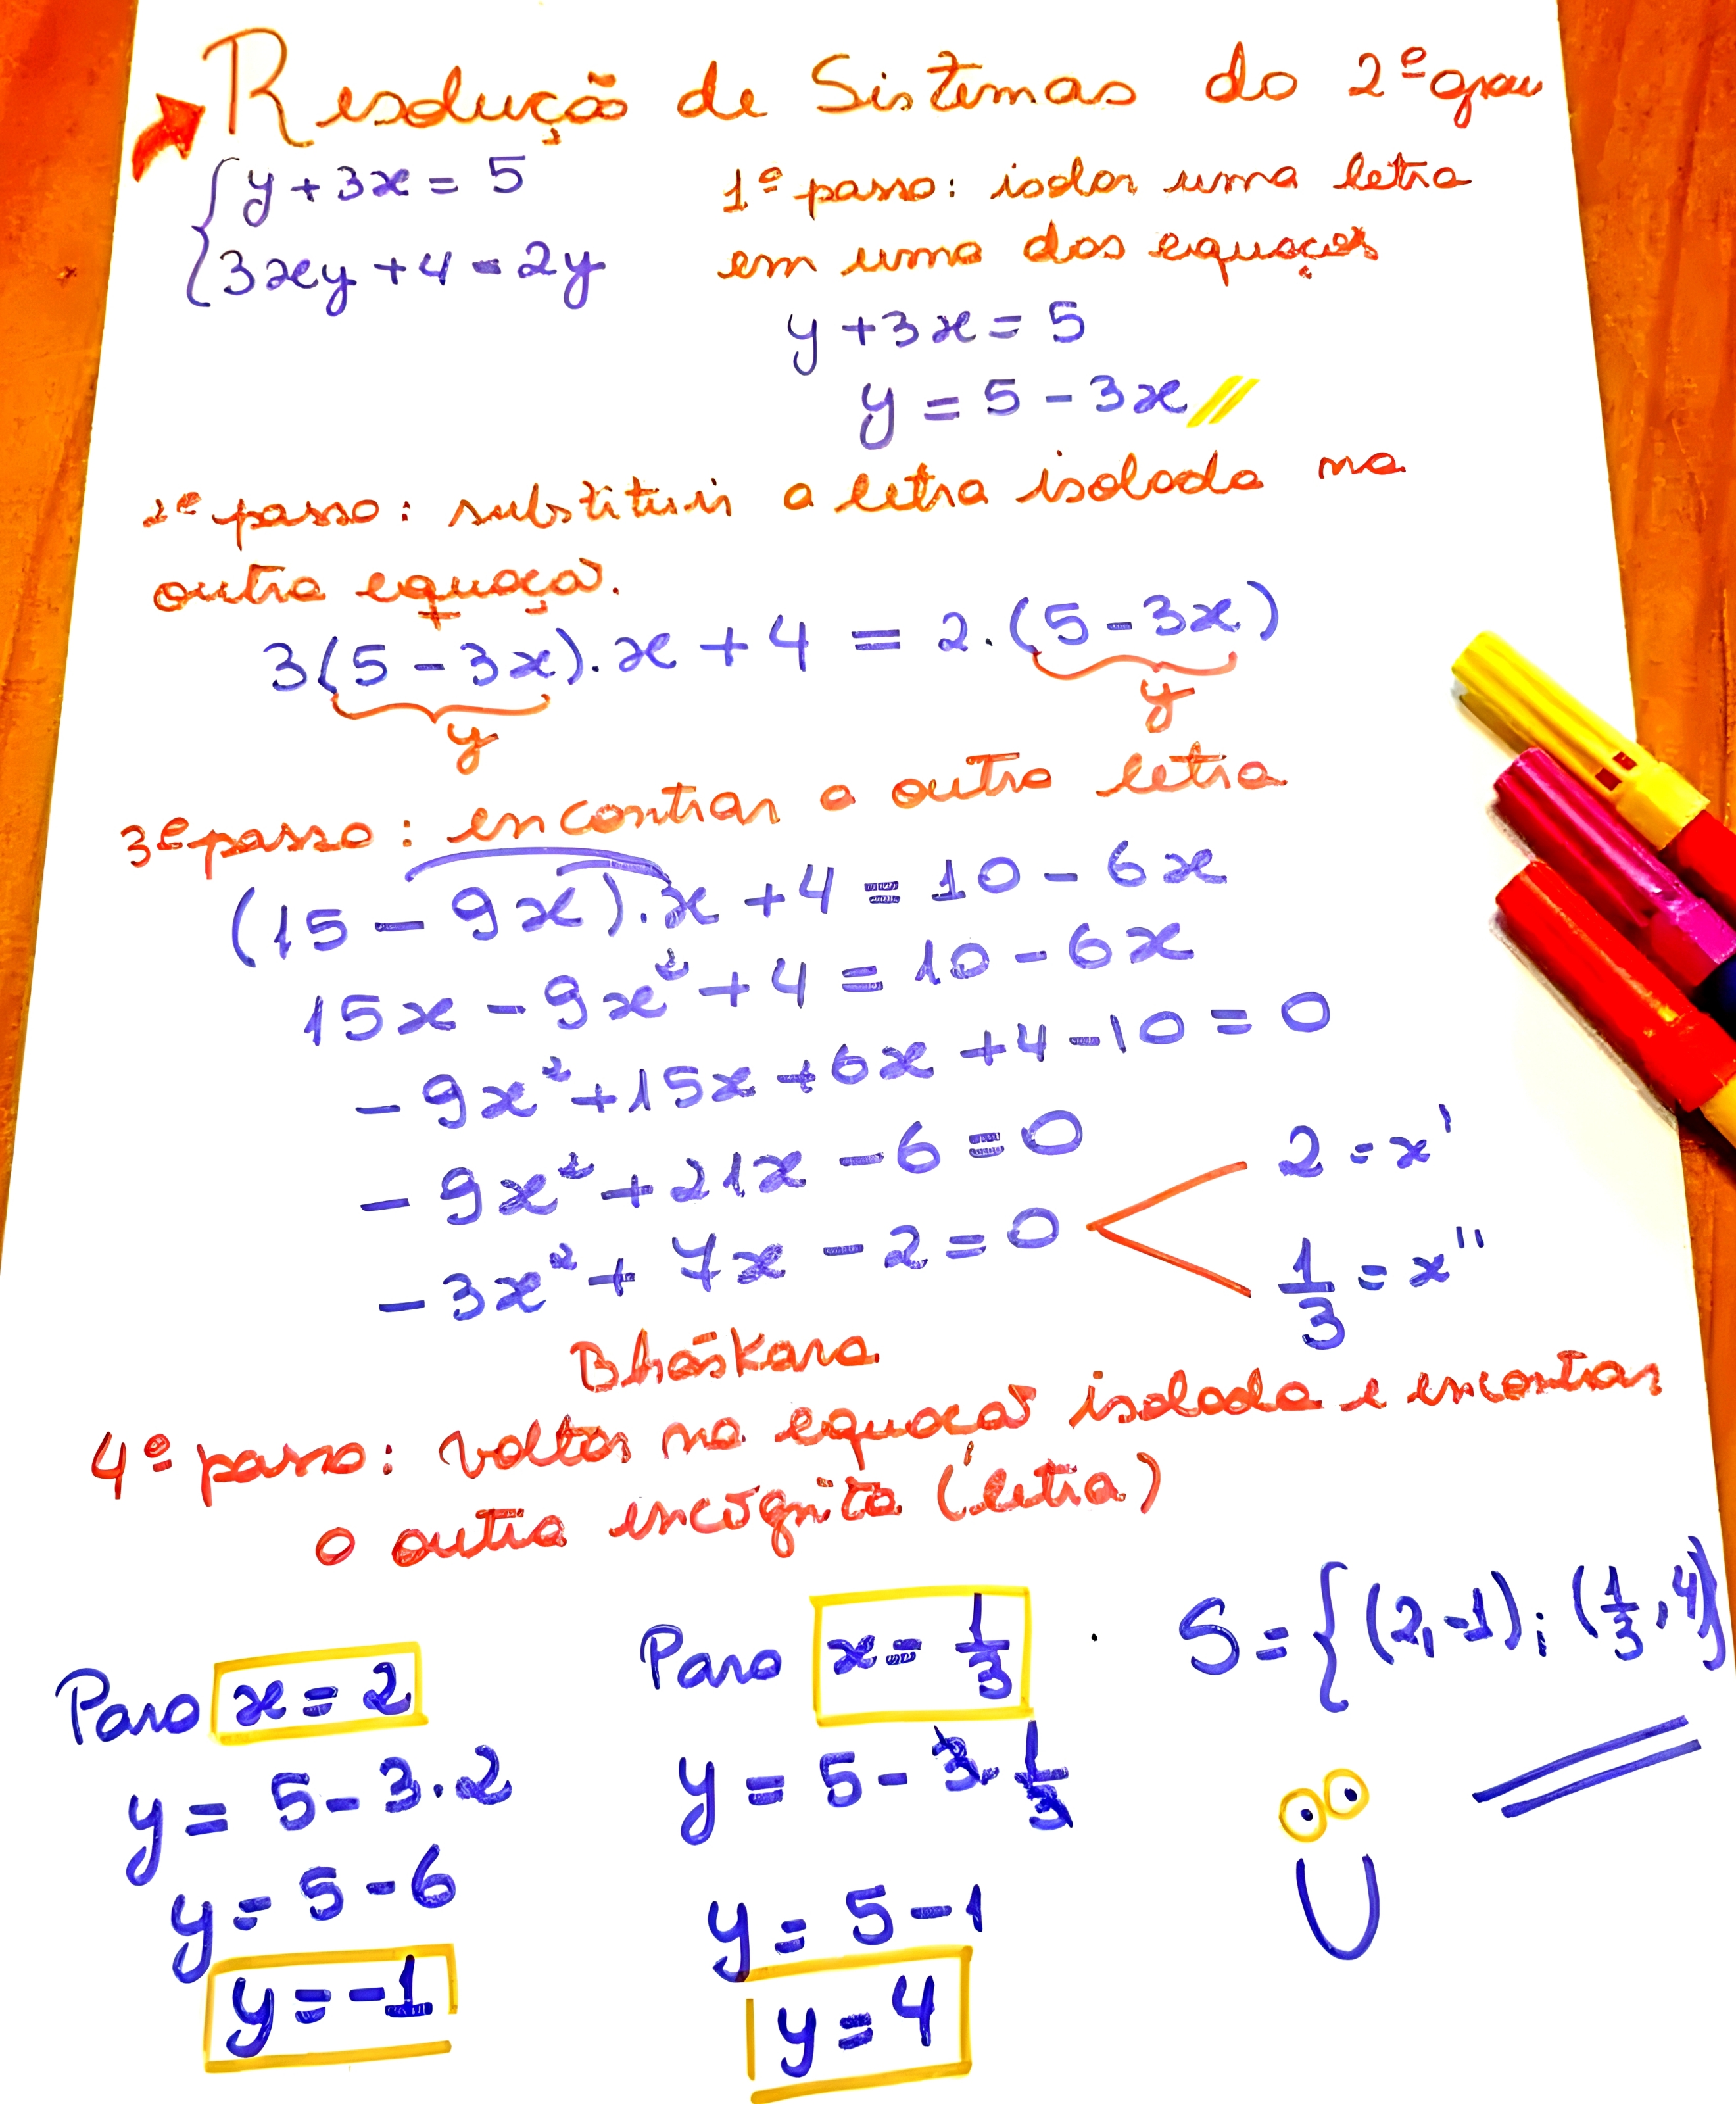 Resolução de Sistemas do 2º grau
{y + 3x = 5
{3xy + 4 = 2y
1º passo: isolar uma letra
em uma das equações
y + 3x = 5
y = 5 - 3x
2º passo: substituir a letra isolada na
outra equação.
3(5 - 3x).x + 4 = 2.(5 - 3x)
y y
3º passo: encontrar a outra letra
(15 - 9x).x + 4 = 10 - 6x
15x - 9x² + 4 = 10 - 6x
- 9x² + 15x + 6x + 4 - 10 = 0
- 9x² + 21x - 6 = 0
- 3x² + 7x - 2 = 0
2 = x'
1/3 = x"
Bháskara
4º passo: voltar na equação isolada e encontrar
a outra incógnita (letra)
Para x = 2
y = 5 - 3.2
y = 5 - 6
y = -1
Para x = 1/3
y = 5 - 3.1/3
y = 5 - 1
y = 4
S = {(2,-1); (1/3,4)}